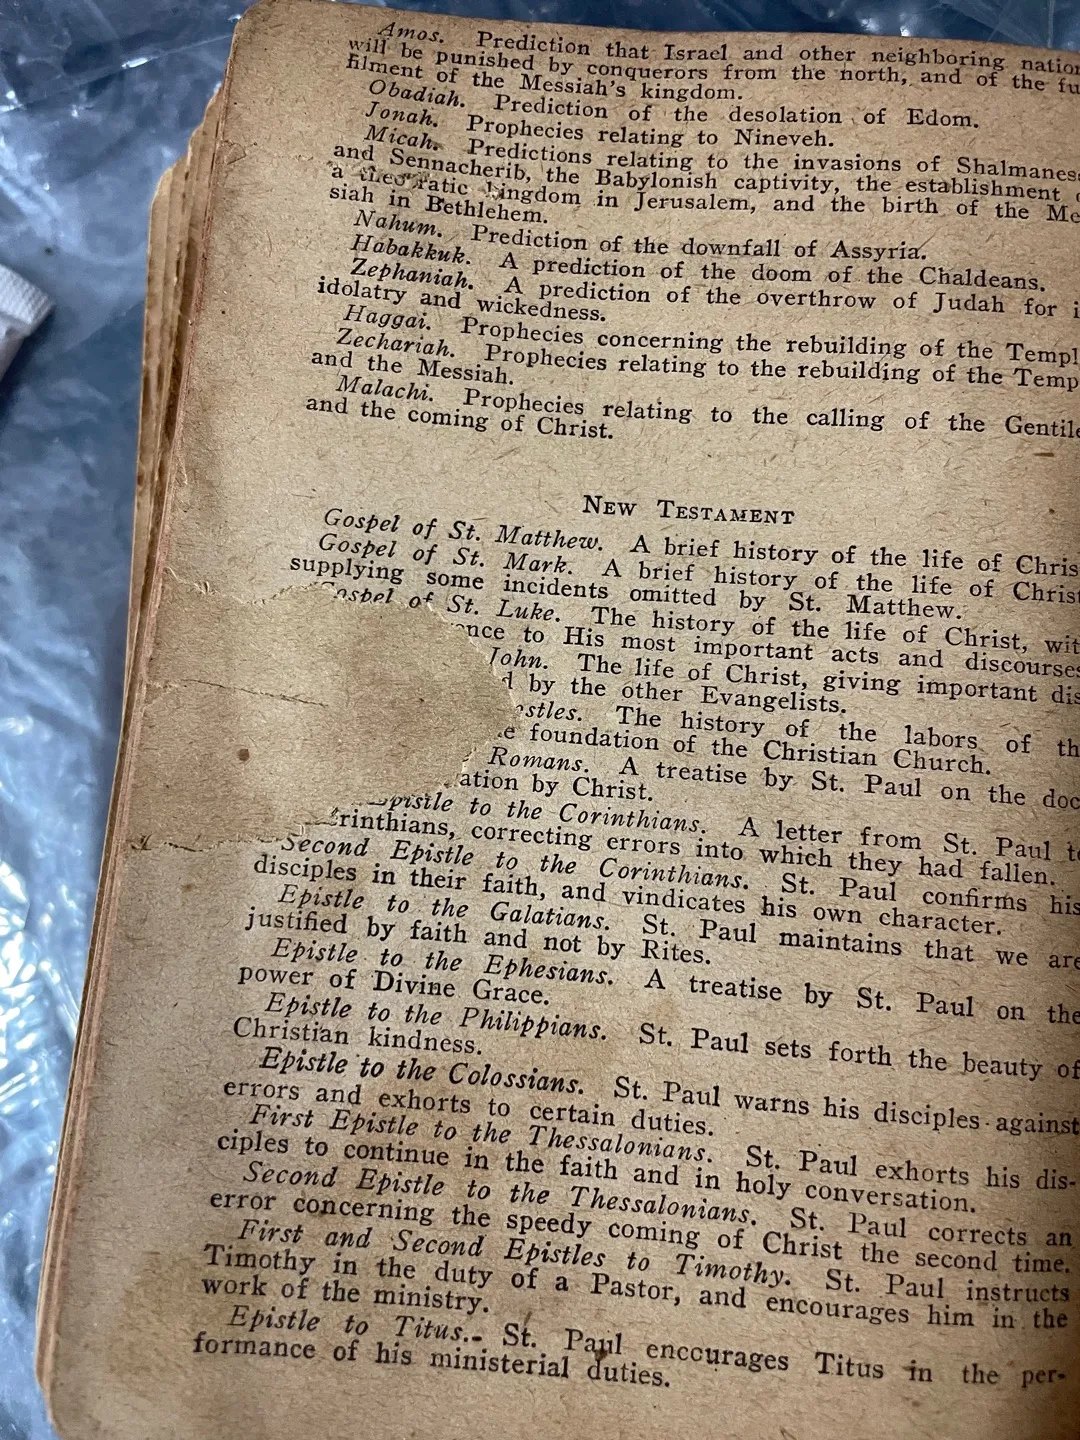 Amos. Prediction that Israel and other neighboring nation
will be punished by conquerors from the north, and of the fu
filment of the Messiah's kingdom.
Obadiah. Prediction of the desolation of Edom.
Jonah. Prophecies relating to Nineveh.
Micah. Predictions relating to the invasions of Shalmanes
and Sennacherib, the Babylonish captivity, the establishment
a theocratic kingdom in Jerusalem, and the birth of the Me
siah in Bethlehem.
Nahum. Prediction of the downfall of Assyria.
Habakkuk. A prediction of the doom of the Chaldeans.
Zephaniah. A prediction of the overthrow of Judah for i
idolatry and wickedness.
Haggai. Prophecies concerning the rebuilding of the Templ
Zechariah. Prophecies relating to the rebuilding of the Temp
and the Messiah.
Malachi. Prophecies relating to the calling of the Gentile
and the coming of Christ.
NEW TESTAMENT
Gospel of St. Matthew. A brief history of the life of Chris
Gospel of St. Mark. A brief history of the life of Christ
supplying some incidents omitted by St. Matthew.
Gospel of St. Luke. The history of the life of Christ, wit
ence to His most important acts and discourses
John. The life of Christ, giving important dis
d by the other Evangelists.
ostles. The history of the labors of th
e foundation of the Christian Church.
Romans. A treatise by St. Paul on the doc
ation by Christ.
Epistle to the Corinthians. A letter from St. Paul to
rinthians, correcting errors into which they had fallen.
Second Epistle to the Corinthians. St. Paul confirms his
disciples in their faith, and vindicates his own character.
Epistle to the Galatians. St. Paul maintains that we are
justified by faith and not by Rites.
Epistle to the Ephesians. A treatise by St. Paul on the
power of Divine Grace.
Epistle to the Philippians. St. Paul sets forth the beauty of
Christian kindness.
Epistle to the Colossians. St. Paul warns his disciples against
errors and exhorts to certain duties.
First Epistle to the Thessalonians. St. Paul exhorts his dis-
ciples to continue in the faith and in holy conversation.
Second Epistle to the Thessalonians. St. Paul corrects an
error concerning the speedy coming of Christ the second time.
First and Second Epistles to Timothy. St. Paul instructs
Timothy in the duty of a Pastor, and encourages him in the
work of the ministry.
Epistle to Titus. St. Paul encourages Titus in the per-
formance of his ministerial duties.